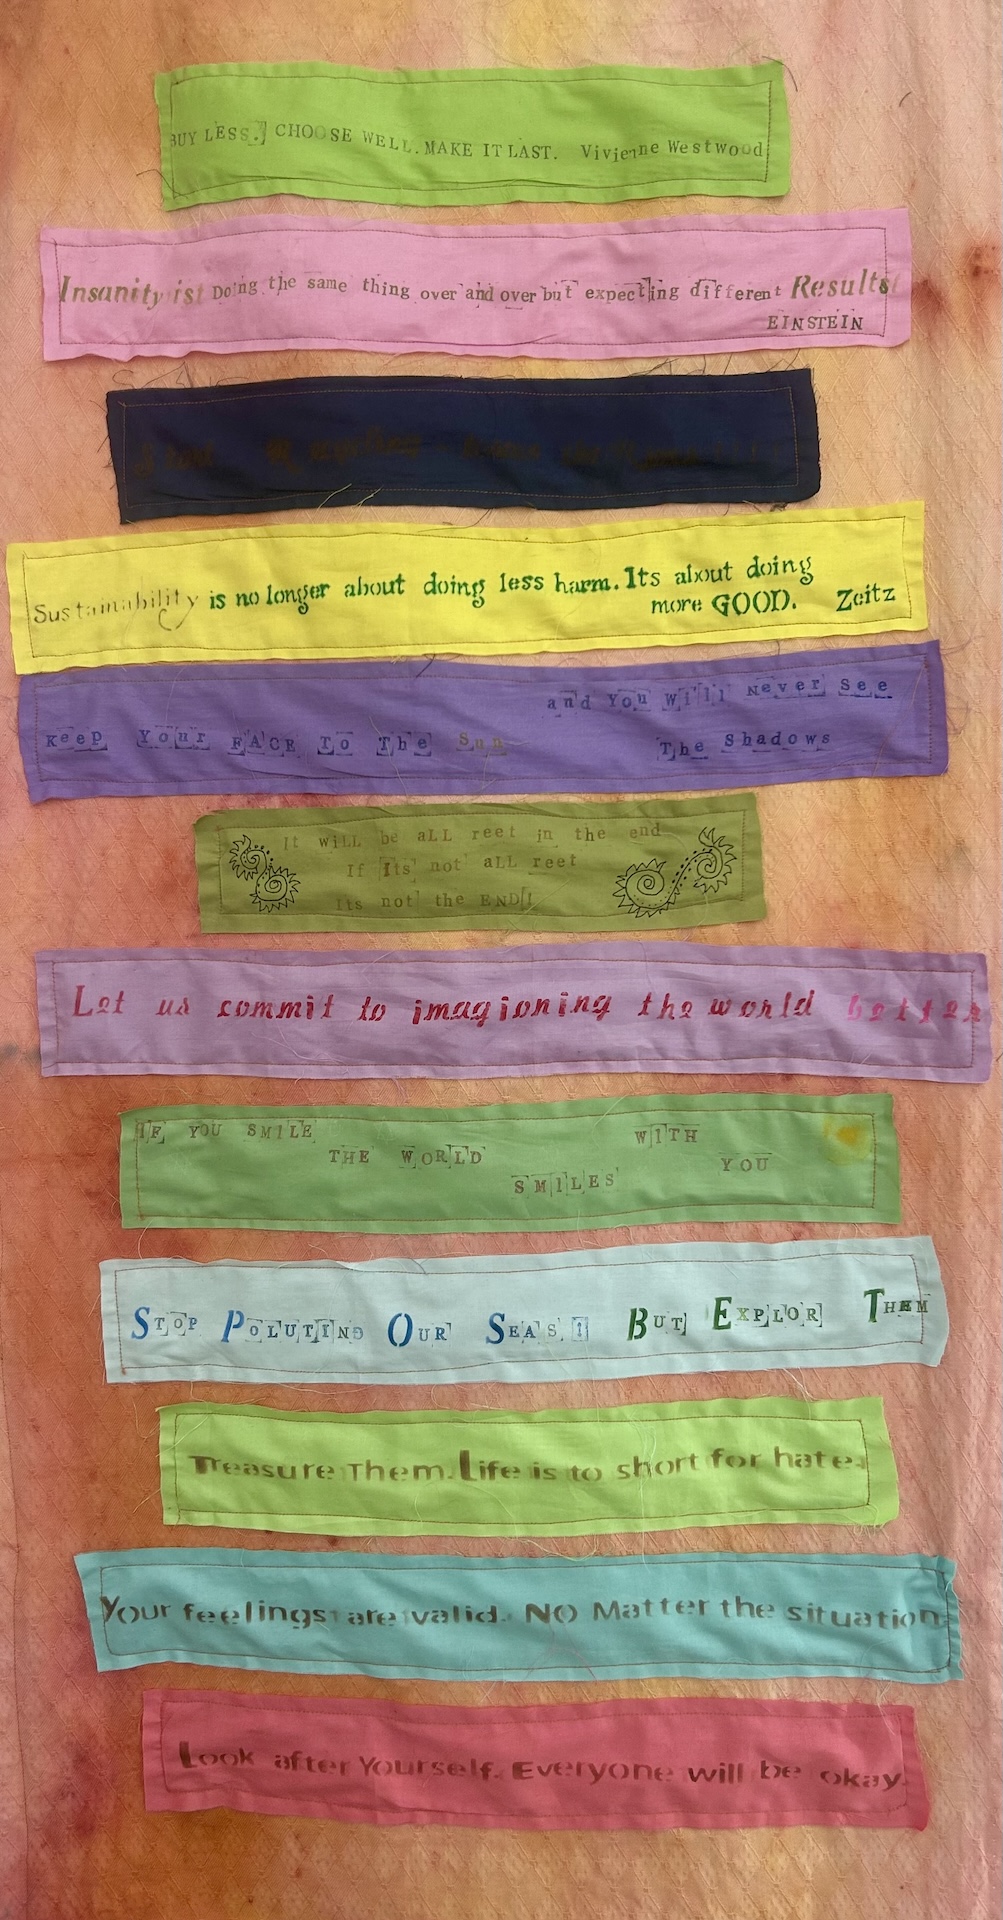 BUY LESS. CHOOSE WELL. MAKE IT LAST. Vivienne Westwood
Insanity is Doing the same thing over and over but expecting different Results
EINSTEIN
Sustainability is no longer about doing less harm. Its about doing
more GOOD. Zeitz
Keep Your FACE To The Sun
and You Will Never See
The Shadows
It will be aLL reet in the end
If Its not aLL reet
Its not the END!
Let us commit to imagioning the world better
IF YOU SMILE
THE WORLD
SMILES
WITH
YOU
STOP POLUTING OUR SEAS! BUT EXPLOR THEM
Treasure Them. Life is to short for hate.
Your feelings are valid. NO Matter the situation
Look after Yourself. Everyone will be okay.